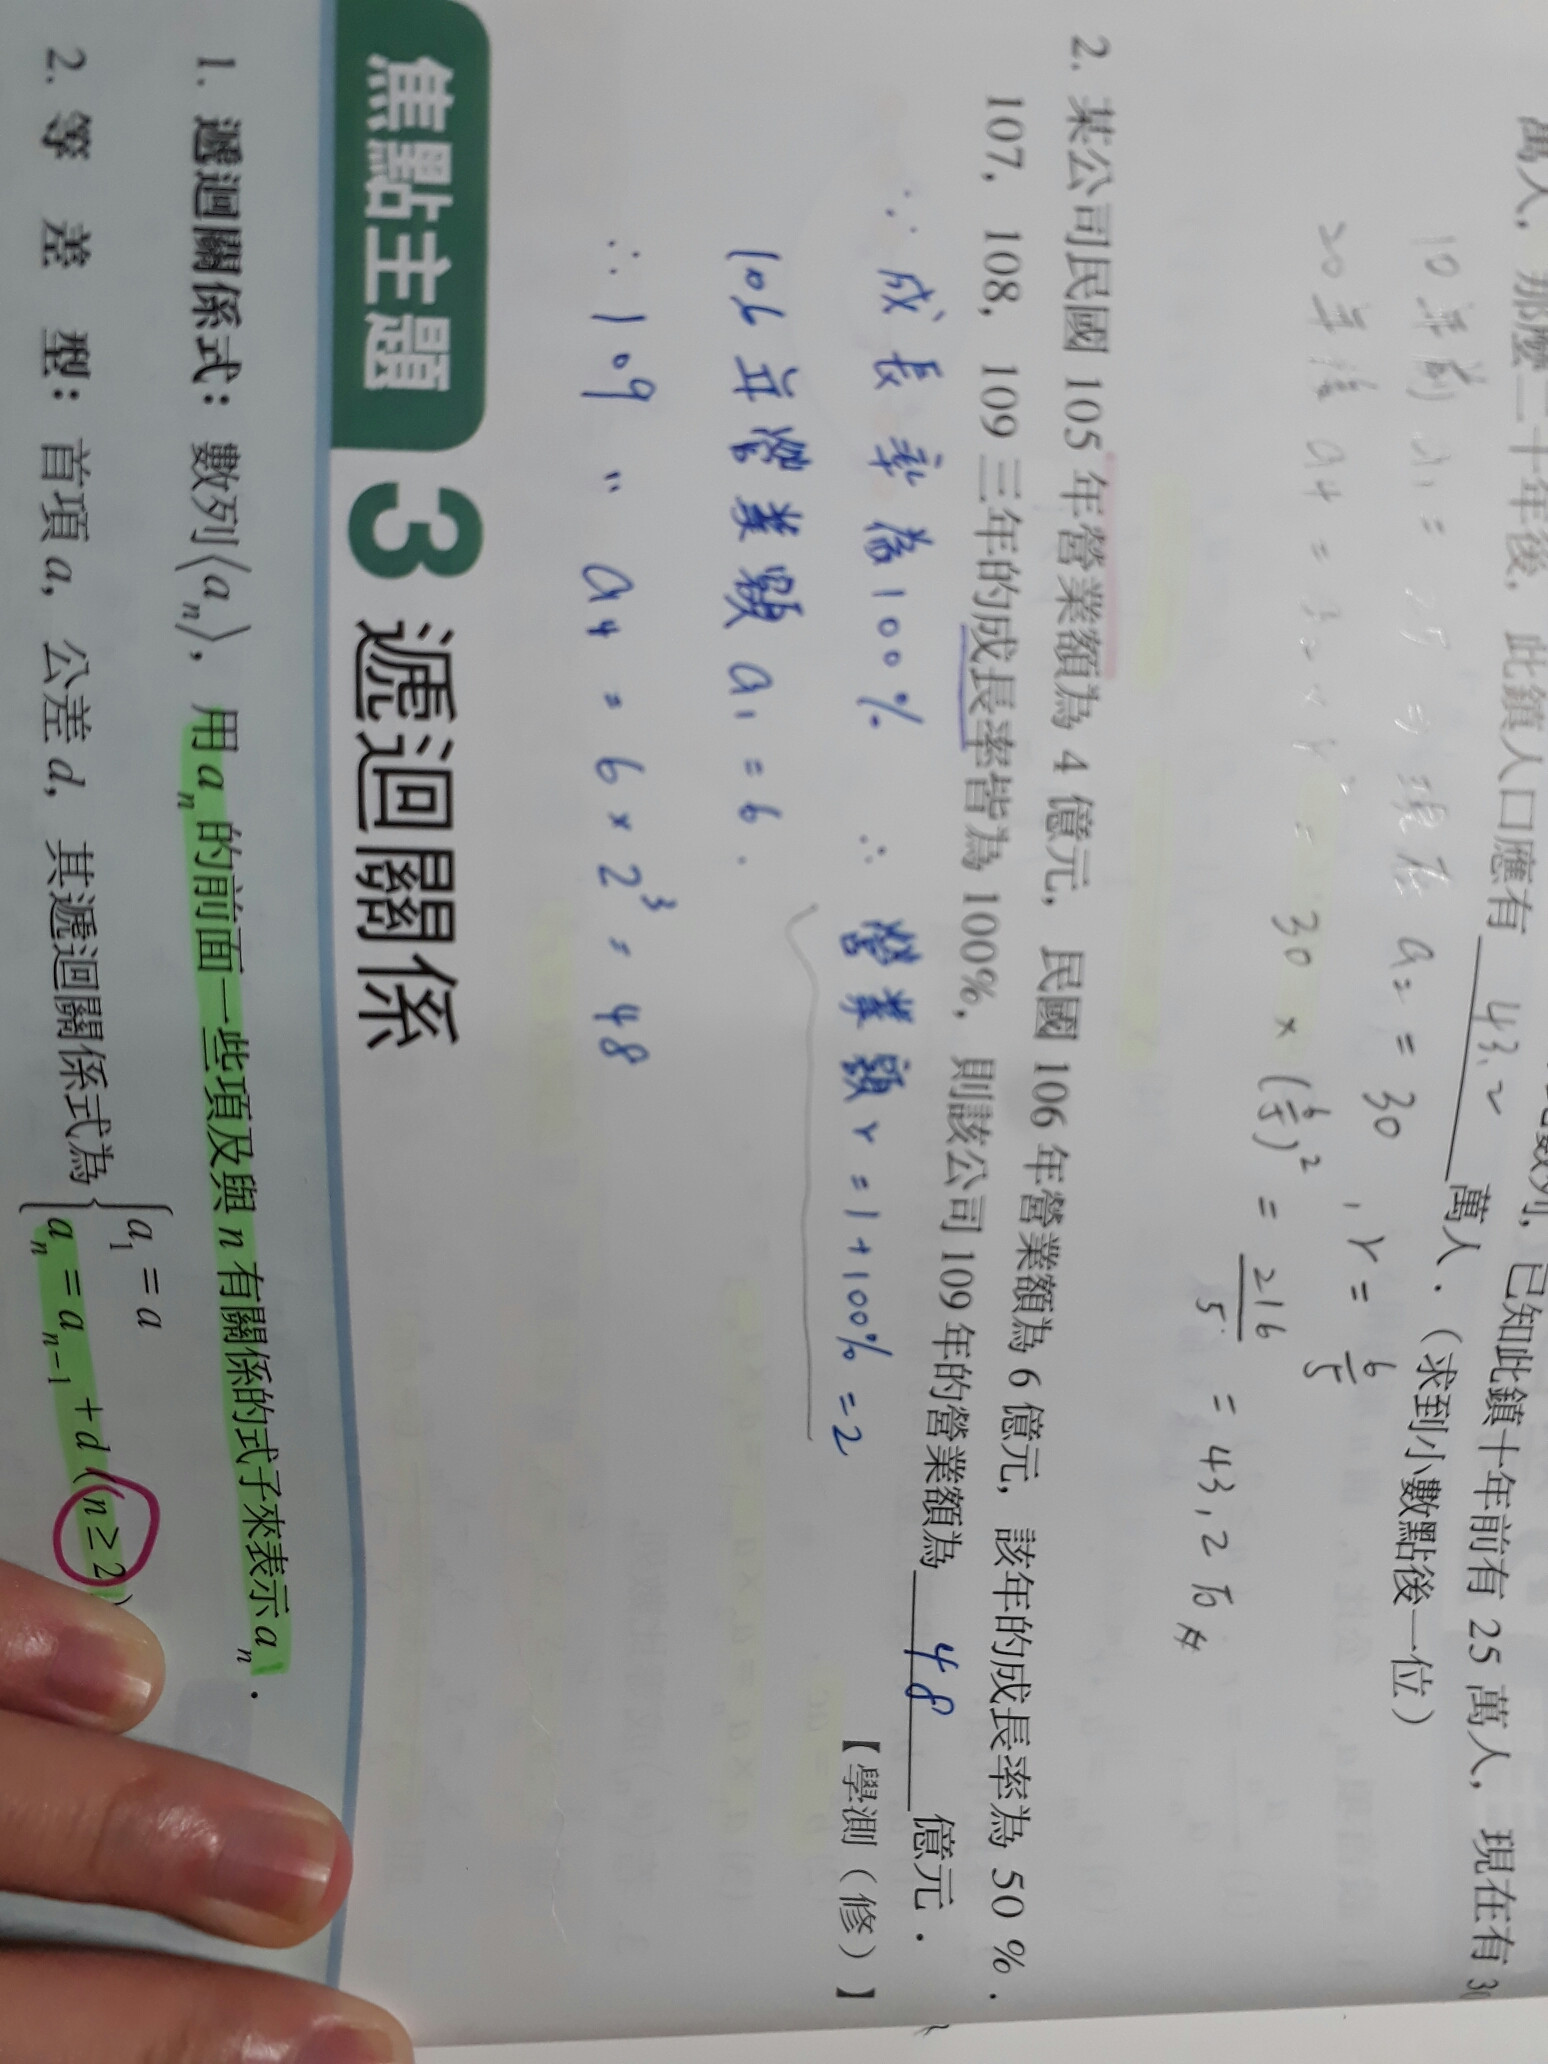 萬人，那麼二十年後，此鎮人口應有 43.2 萬人．（求到小數點後一位）
數列，已知此鎮十年前有 25 萬人，現在有 30
10年前 a₁ = 25 ⇒ 現在 a₂ = 30 , r = 6/5
20年後 a₄ = a₂ × r² = 30 × (6/5)² = 216/5 = 43.2
2. 某公司民國 105 年營業額為 4 億元，民國 106 年營業額為 6 億元，該年的成長率為 50 %．
107，108，109 三年的成長率皆為 100%，則該公司 109 年的營業額為 48 億元．
【學測（修）】
∵ 成長率為100% ∴ 營業額 r = 1 + 100% = 2
106年營業額 a₁ = 6 .
∴ 109 〃 a₄ = 6 × 2³ = 48
焦點主題 3 遞迴關係
1. 遞迴關係式：數列⟨aₙ⟩，用 aₙ 的前面一些項及與 n 有關係的式子來表示 aₙ．
2. 等 差 型：首項 a，公差 d，其遞迴關係式為 { a₁ = a
aₙ = aₙ₋₁ + d (n ≥ 2)